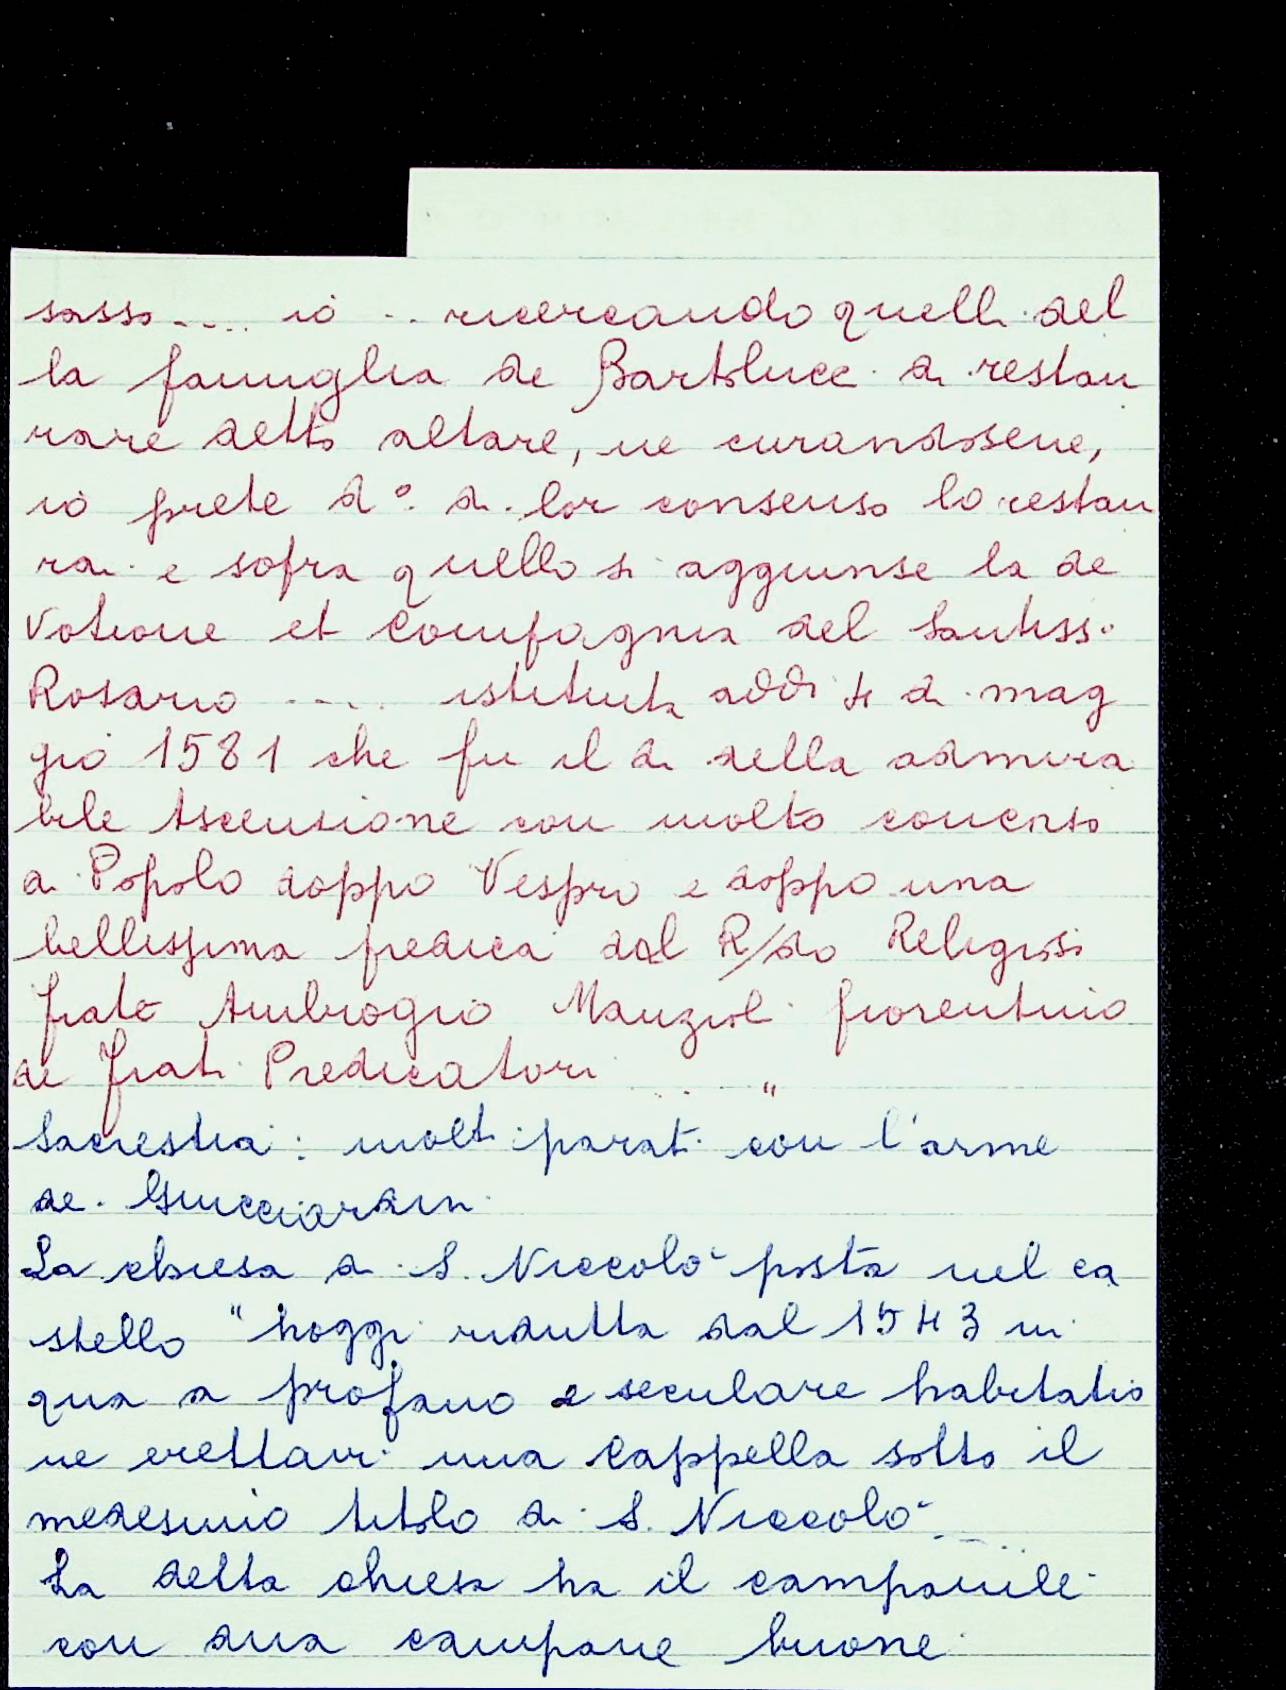 sasso..... io ... ricercando quelli del
la famiglia de Bartolucci di restau
rare detto altare, ne curandosene,
io prete d°. di lor consenso lo restau
rai e sopra quello si aggiunse la de
votione et Compagnia del Santiss.
Rosario ..... istituita addì 4 di mag
gio 1581 che fu il dì della admira
bile Ascensione con molto concorso
di Popolo doppo Vespro e doppo una
bellissima predica dal R/do Religioso
frate Ambrogio Manzioli fiorentino
de frati Predicatori .... "
Sacrestia: molti parati con l'arme
de Guicciardini
La chiesa di S. Niccolò posta nel ca
stello "hoggi ridutta dal 1543 in
qua a profano e seculare habitatio
ne erettavi una Cappella sotto il
medesimo titolo di S. Niccolò ....
La detta chiesa ha il campanile
con dua campane buone